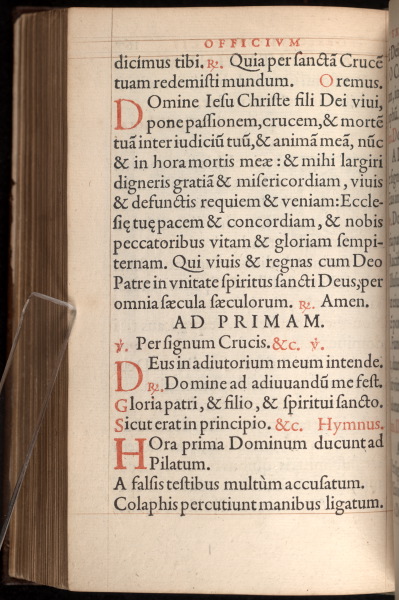 OFFICIVM
dicimus tibi. ℟. Quia per sanctã Crucẽ
tuam redemisti mundum. Oremus.
DOmine Iesu Christe fili Dei viui,
pone passionem, crucem, & mortẽ
tuã inter iudiciũ tuũ, & animã meã, nũc
& in hora mortis meæ : & mihi largiri
digneris gratiã & misericordiam, viuis
& defunctis requiem & veniam: Eccle-
się tuę pacem & concordiam, & nobis
peccatoribus vitam & gloriam sempi-
ternam. Qui viuis & regnas cum Deo
Patre in vnitate spiritus sancti Deus, per
omnia sæcula sæculorum. ℟. Amen.
AD PRIMAM.
℣. Per signum Crucis. &c. ℣.
DEus in adiutorium meum intende.
℟. Domine ad adiuuandũ me fest.
Gloria patri, & filio, & spiritui sancto.
Sicut erat in principio. &c. Hymnus.
HOra prima Dominum ducunt ad
Pilatum.
A falsis testibus multùm accusatum.
Colaphis percutiunt manibus ligatum.